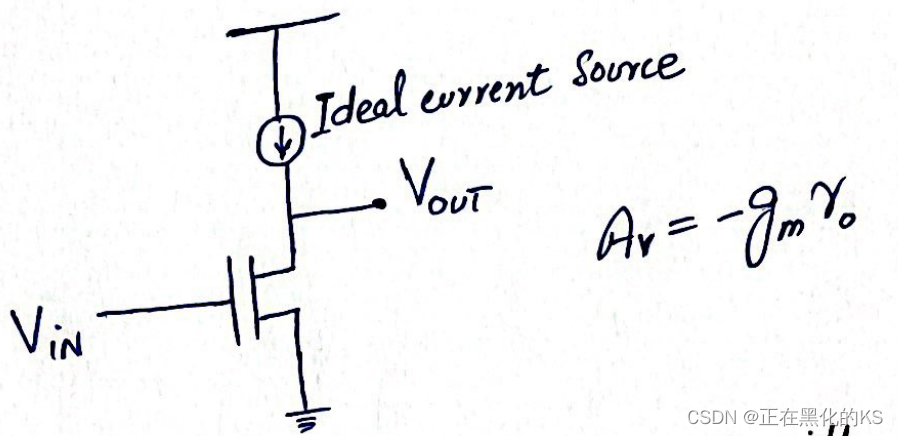 Ideal current Source
VOUT
Av = -gmro
VIN
CSDN @正在黑化的KS